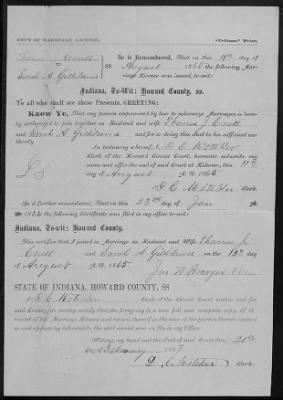 COPY OF MARRIAGE LICENSE, "Tribune" Print.
Be it Remembered, That on this 11th day of
August 1865 the following Mar-
Sarah A. Gilliland riage License was issued, to-wit:
Indiana, To-Wit: Howard County, ss.
To all who shall see these Presents, GREETING:
Know Ye, That any person empowered by law to solemnize Marriages is hereby
authorized to join together as Husband and Wife Thomas J.
and Sarah A. Gilliland and for so doing this shall be his sufficient
authority.
In testimony whereof, I,
Clerk of the Howard Circuit Court, hereunto subscribe my
name and affix the seal of said Court at Kokomo, this 11th
LS day of August 1865
Clerk.
Be it further remembered, That on this 23rd day of Jan
1866 the following Certificate was filed in my office to-wit:
Indiana, To-wit: Howard County.
This certifies that I joined in Marriage as Husband and Wife Thomas J.
and Sarah A Gilliland on the 13th day
of August A. D. 1865
STATE OF INDIANA, HOWARD COUNTY, SS
I, Clerk of the Circuit Court within and for
said County, do hereby certify that the foregoing is a true full and complete copy of the
record of the Marriage License and return thereof as also of the
as and appears by reference to the said record now on file in my office.
Witness, my hand and the Seal of said Court this 20th
day of February 1867
Clerk.